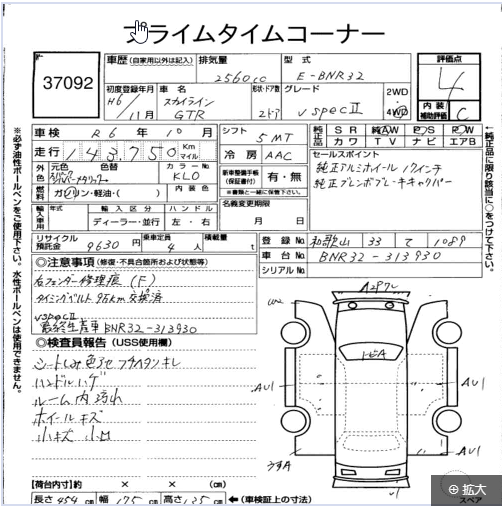 プライムタイムコーナー
37092
車歴(自家用以外は記入)
排気量
2560cc
型式
E-BNR32
評価点
4
初度登録年月
H6/11月
車名
スカイライン
GTR
形状・ドア数
2ドア
グレード
VspecII
2WD
4WD
内装
補助評価
C
車検 R6年10月
シフト
5MT
純正品
SR
純AW
PS
PW
カワ
TV
ナビ
エアB
走行 143,750 Km
マイル
冷房
AAC
セールスポイント
純正アルミホイール17インチ
純正ブレンボブレーキキャリパー
外色
元色
色替
カラーNo
KL0
新車整備手帳
(保証書付)
有・無
※書類と一緒に保管下さい。
燃料
ガソリン・軽油・( )
内装色
名義変更期限
月 日
輸入車用
年式
輸入区分
ディーラー・並行
ハンドル
左・右
リサイクル
預託金
9630円
乗車定員
4人
積載量
t
登録No
和歌山 33 て 1089
車台No
BNR32-313930
シリアルNo
◎注意事項(修復・不具合箇所および状態等)
右フェンダー修理痕(F)
タイミングベルト 95千km 交換済
VspecII
最終生産車 BNR32-313930
◎検査員報告(USS使用欄)
シートしみ色アセ
ハンドルハゲ
ルーム内汚れ
ホイールキズ
小キズ 小凹
A2
AU1
AU1
うすA
【荷台内寸】約 × × (cm)
長さ 454 cm 幅 175 cm 高さ 135 cm ←(車検証上の寸法)
スペア
拡大
※必ず油性ボールペンをご使用下さい。水性ボールペンは使用できません。
←純正品に限り該当に○をつけて下さい。